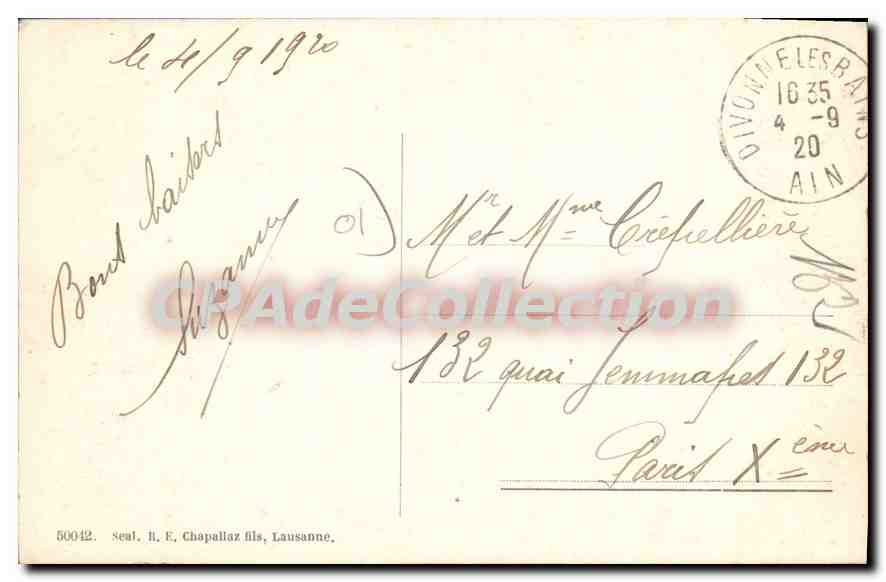 le 4/9 1920
DIVONNE LES BAINS
16 35
4 -9
20
AIN
Bons baisers
Suzanne
01
Mr et Mme Crépellière
132 quai Jemmapes 132
Paris Xème
CPAdeCollection
50042. Seal. R. E. Chapallaz fils, Lausanne.